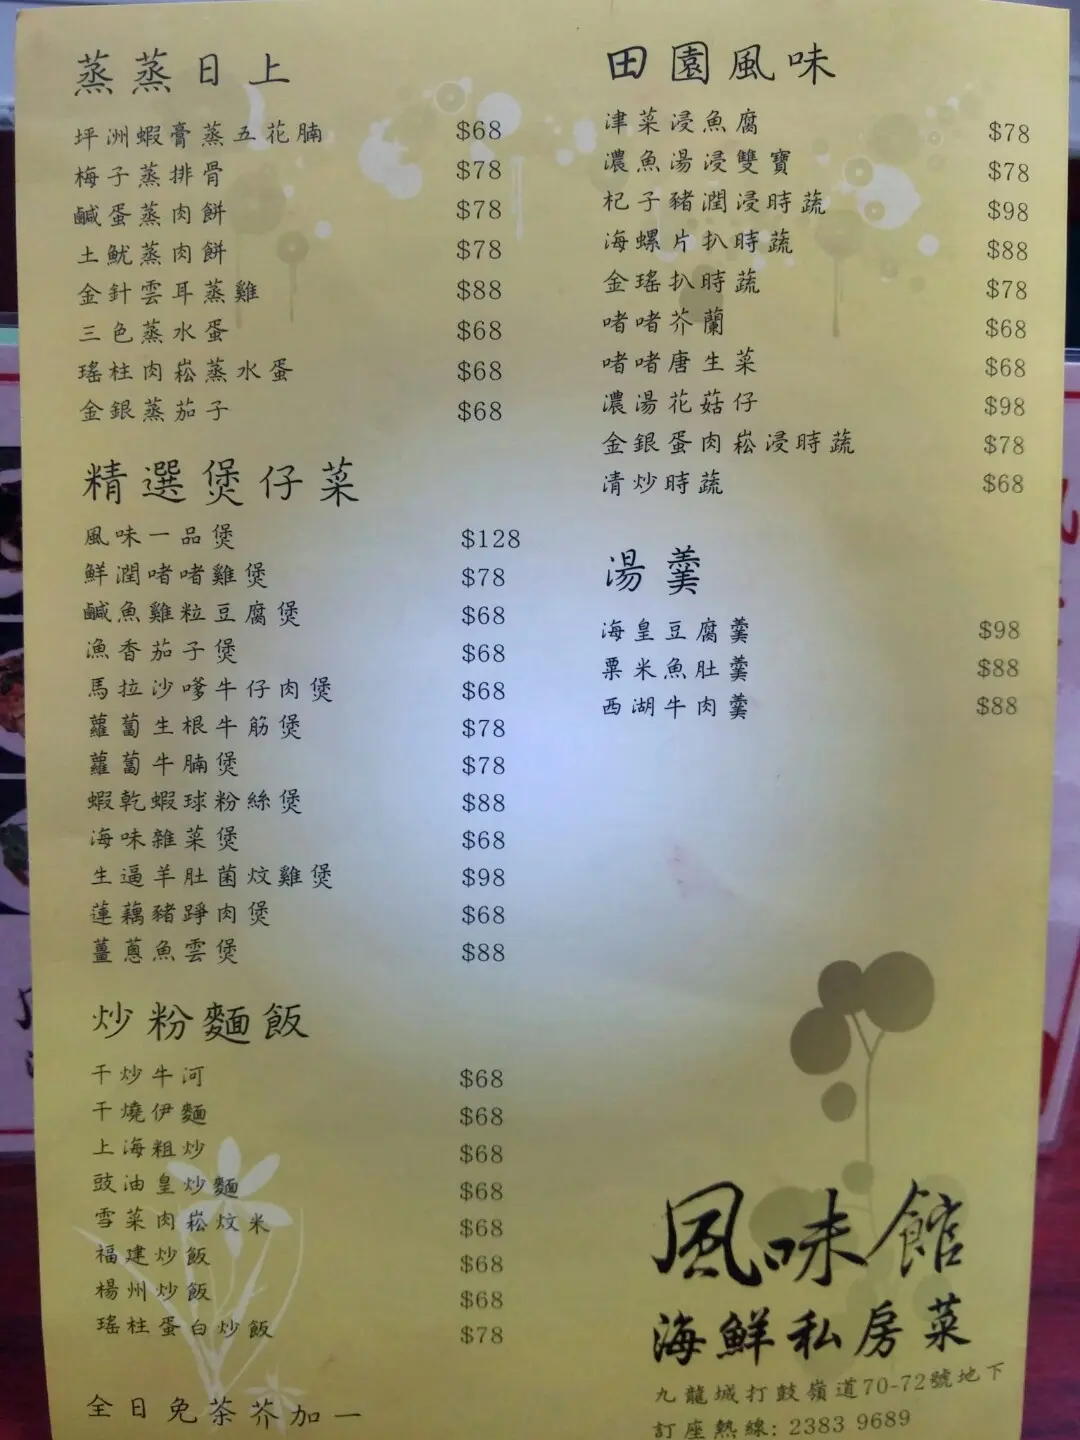 蒸蒸日上
坪洲蝦膏蒸五花腩 $68
梅子蒸排骨 $78
鹹蛋蒸肉餅 $78
土魷蒸肉餅 $78
金針雲耳蒸雞 $88
三色蒸水蛋 $68
瑤柱肉崧蒸水蛋 $68
金銀蒸茄子 $68
精選煲仔菜
風味一品煲 $128
鮮潤啫啫雞煲 $78
鹹魚雞粒豆腐煲 $68
漁香茄子煲 $68
馬拉沙嗲牛仔肉煲 $68
蘿蔔生根牛筋煲 $78
蘿蔔牛腩煲 $78
蝦乾蝦球粉絲煲 $88
海味雜菜煲 $68
生逼羊肚菌炆雞煲 $98
蓮藕豬踭肉煲 $68
薑蔥魚雲煲 $88
炒粉麵飯
干炒牛河 $68
干燒伊麵 $68
上海粗炒 $68
豉油皇炒麵 $68
雪菜肉崧炆米 $68
福建炒飯 $68
楊州炒飯 $68
瑤柱蛋白炒飯 $78
全日免茶芥加一
田園風味
津菜浸魚腐 $78
濃魚湯浸雙寶 $78
杞子豬潤浸時蔬 $98
海螺片扒時蔬 $88
金瑤扒時蔬 $78
啫啫芥蘭 $68
啫啫唐生菜 $68
濃湯花菇仔 $98
金銀蛋肉崧浸時蔬 $78
清炒時蔬 $68
湯羹
海皇豆腐羹 $98
粟米魚肚羹 $88
西湖牛肉羹 $88
風味館
海鮮私房菜
九龍城打鼓嶺道70-72號地下
訂座熱線: 2383 9689